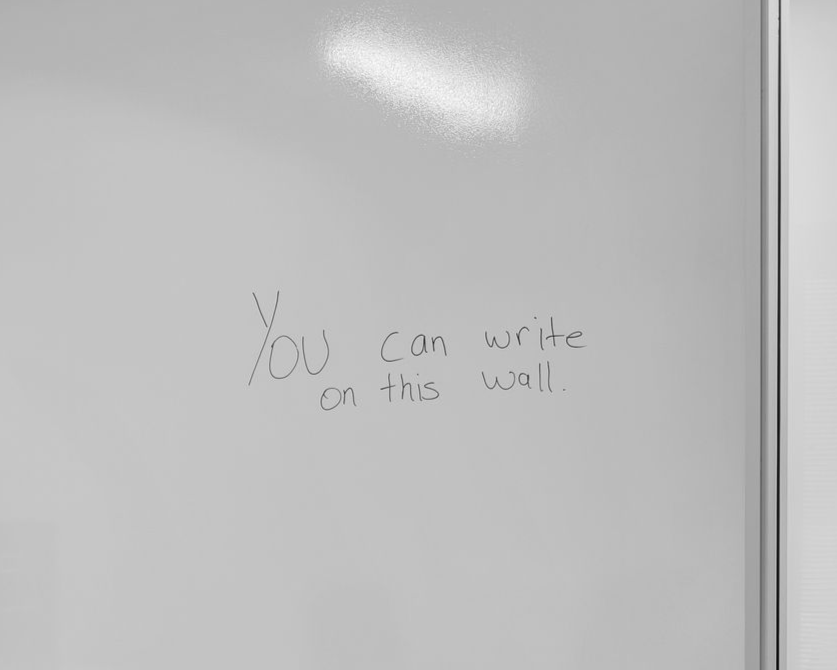 You can write
on this wall.